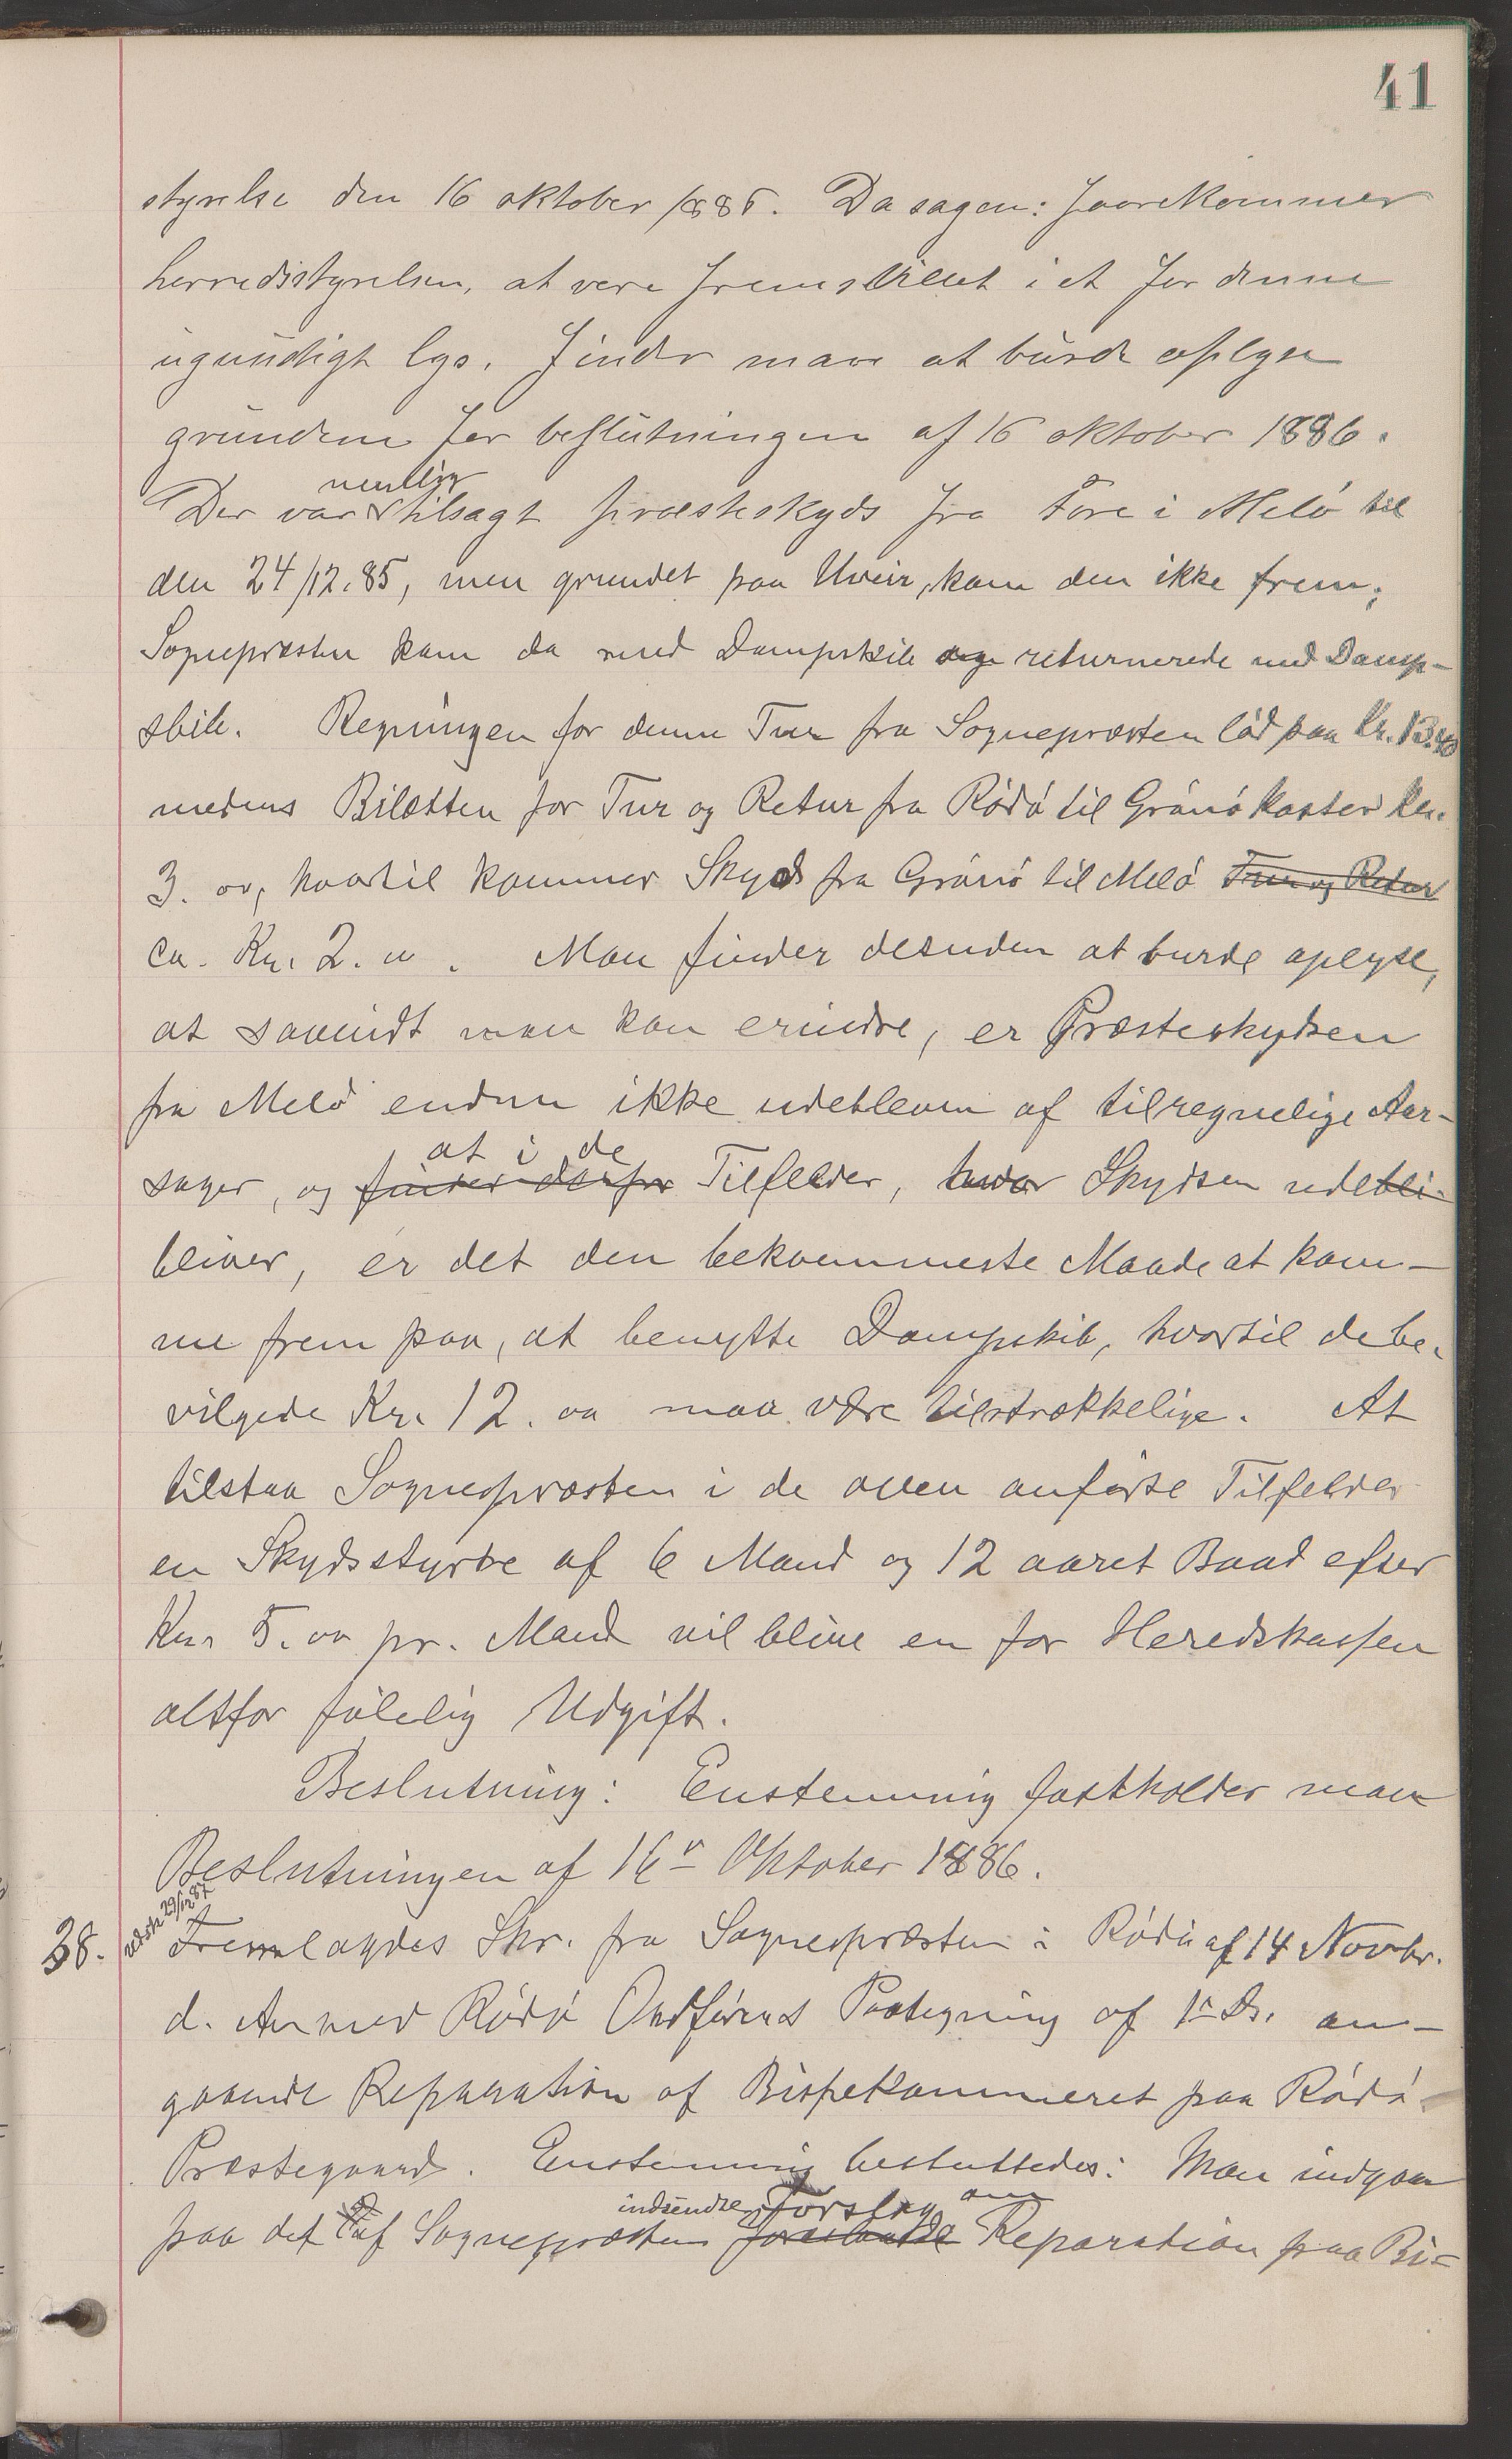 41
styrelse den 16 oktober 1886. Da sagen: foorekommer
herredsstyrelsen, at vere fremstillet i et for denne
ugunstigt lys, finder man at burde oplyse
grundene for beslutningen af 16 oktober 1886.
nemlig
Der var tilsagt præsteskyds fra Fore i Melö til
den 24/12.85, men grundet paa Uveir, kom den ikke frem;
Sognepræsten kom da med Dampskib og returnerede med Damp-
skib. Regningen for denne Tur fra Sognepræsten lød paa Kr. 13.40
medens Biletten for Tur og Retur fra Rödö til Grönö koster Kr.
3. oo, hvortil kommer Skyds fra Grönö til Melö Tur og Retur
ca. Kr. 2. oo. Man finder desuden at burde oplyse,
at saavidt man kan erindre, er Præsteskydsen
fra Melö endnu ikke udebleven af tilregnelige Aar-
at i de
sager, og finder derfor Tilfelder, hvor Skydsen udebli-
bliver, er det den bekvemmeste Maade at kom-
me frem paa, at benytte Dampskib, hvortil de be-
vilgede Kr. 12. oo maa være tilstrækkelige. At
tilstaa Sognepræsten i de oven anförte Tilfelder
en Skydsstyrke af 6 Mand og 12 aaret Baad efter
Kr. 5. oo pr. Mand vil blive en for Heredskassen
altfor fölelig Udgift.
Beslutning: Enstemmig fastholder man
Beslutningen af 16 Oktober 1886.
38. 29/12 87
Fremlagdes Skr. fra Sognepræsten i Rödö af 14 Novbr.
d. A. med Rödö Ordförers Paategning af 1 Ds. an-
gaaende Reparation af Bispekammeret paa Rödö
Præstegaard. Enstemmig besluttedes: Man indgaar
indsendte Forslag om
paa det af Sognepræsten foreslaaede Reparation paa Bi-